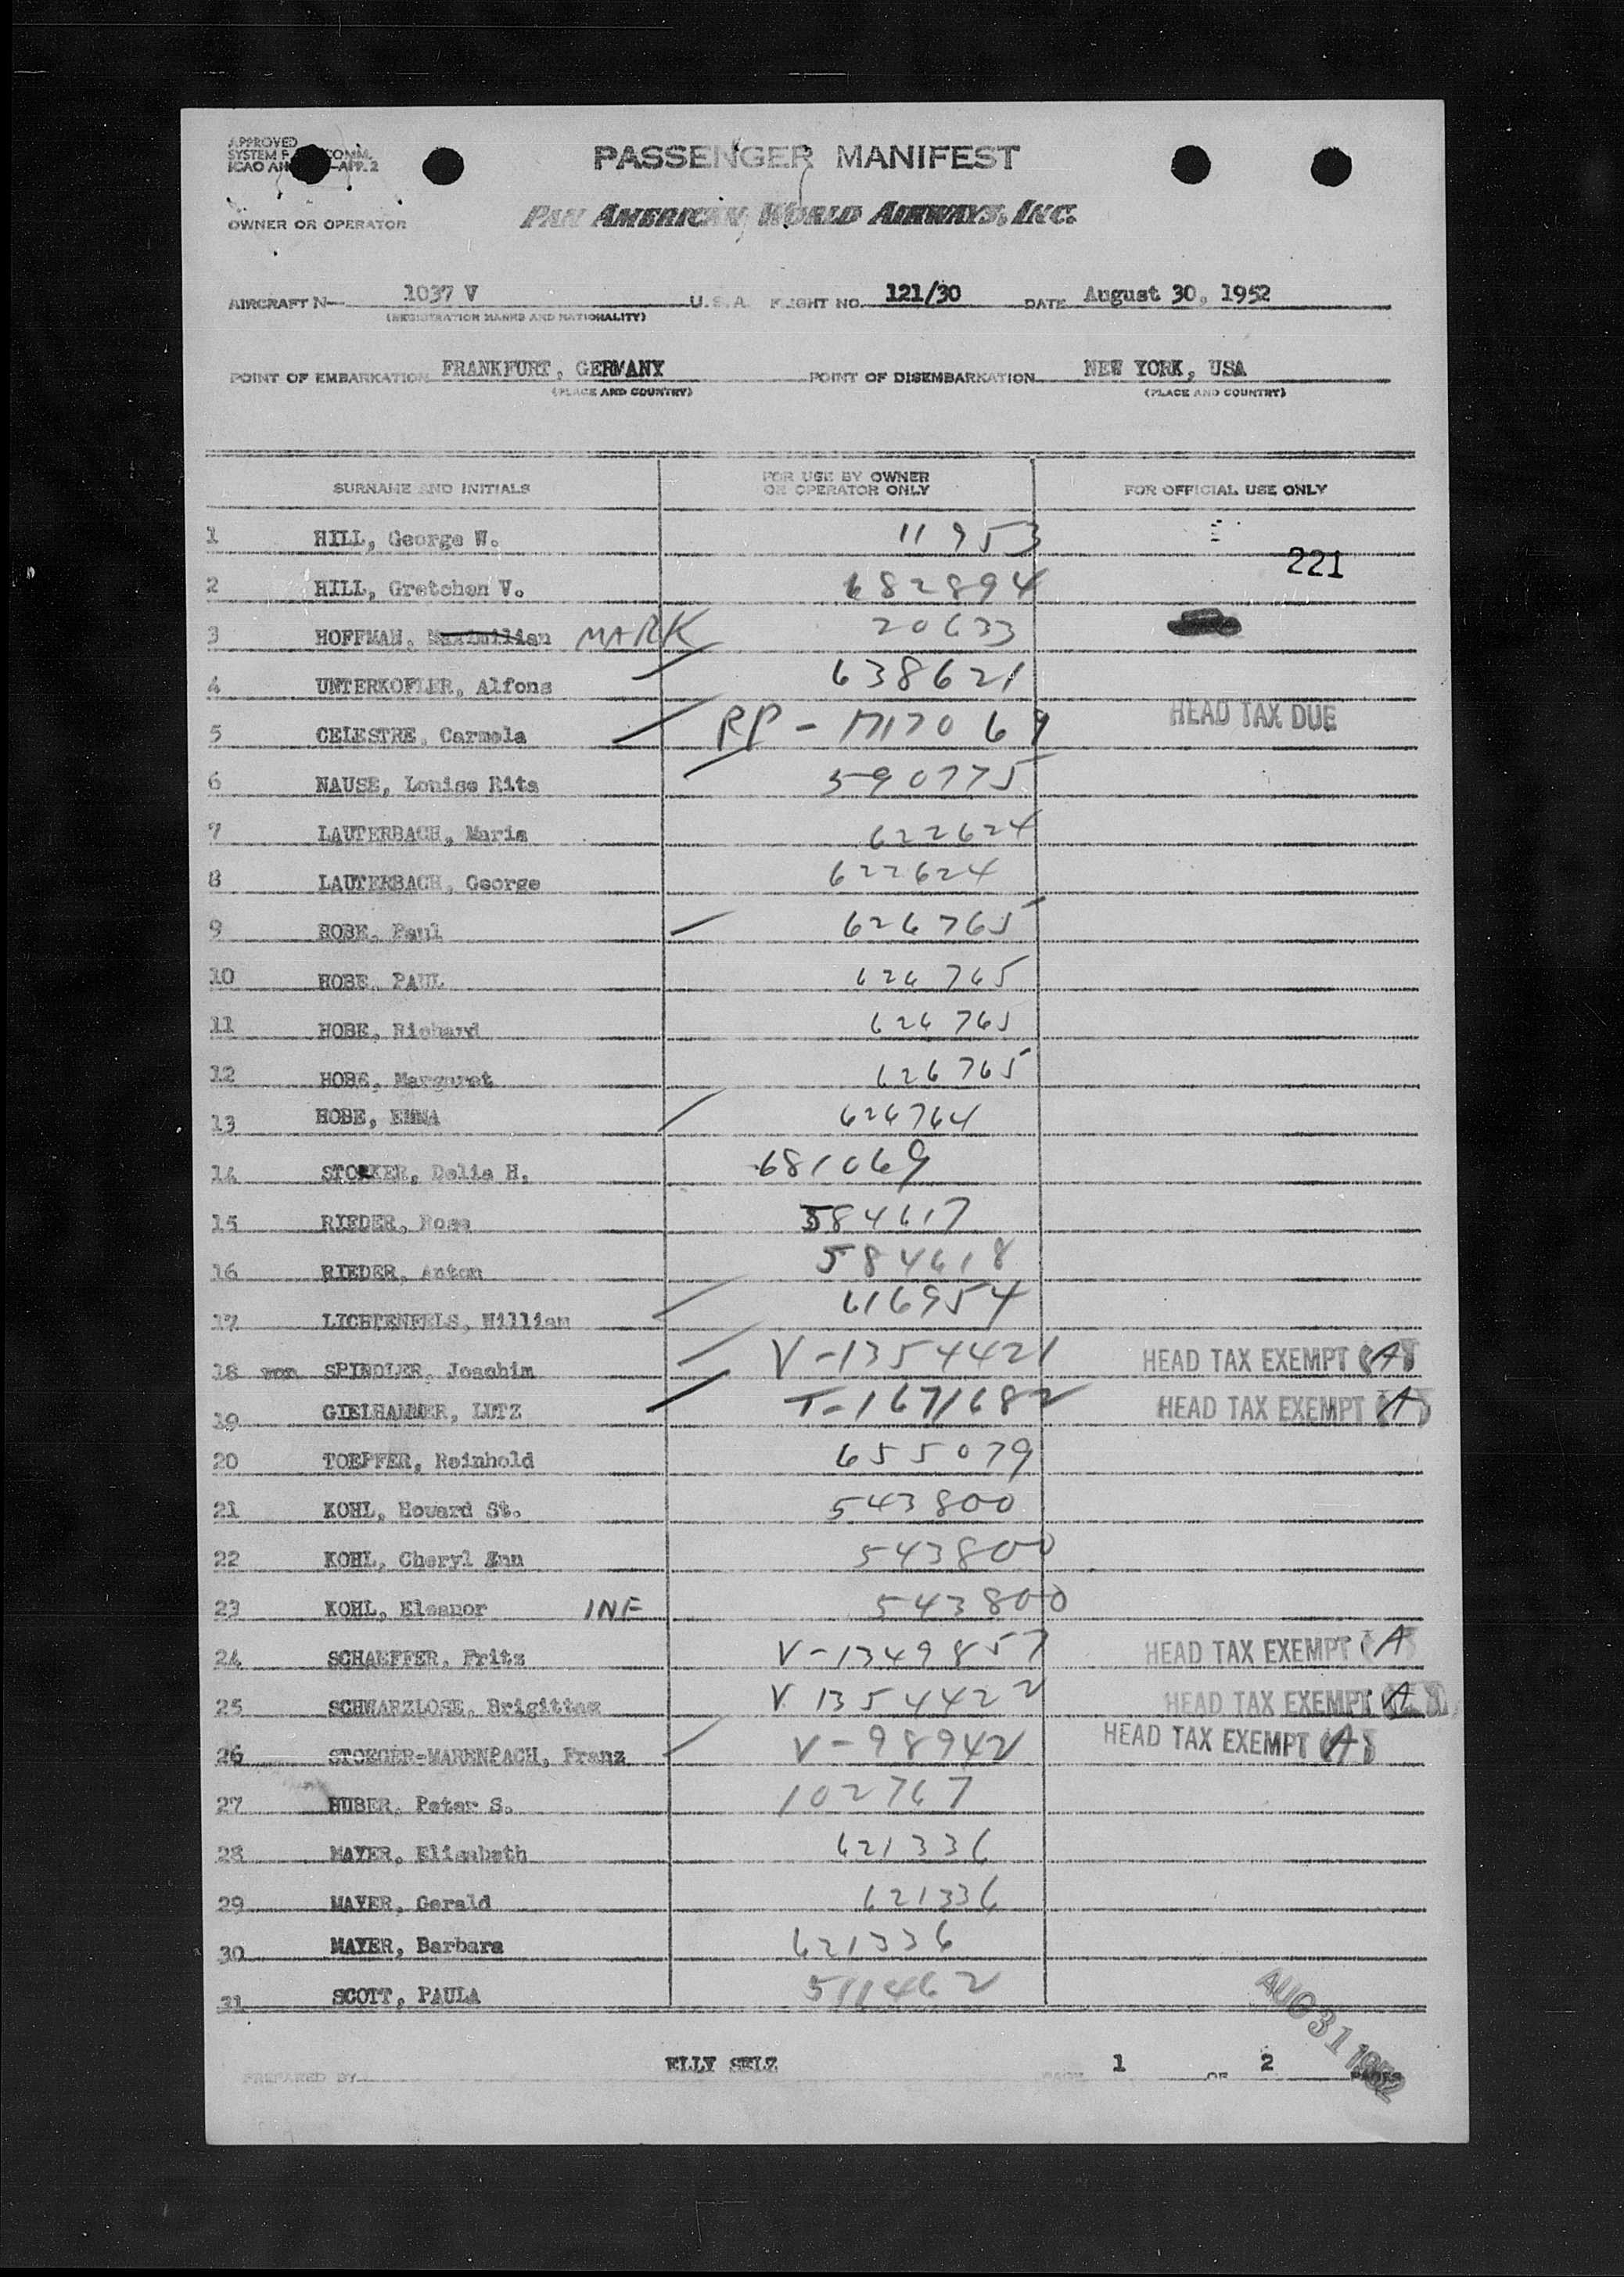 APPROVED
SYSTEM F COMM.
ICAO AN —APP. 2
PASSENGER MANIFEST
OWNER OR OPERATOR PAN AMERICAN WORLD AIRWAYS, INC.
AIRCRAFT N— 1037 V U. S. A. FLIGHT NO. 121/30 DATE August 30, 1952
(REGISTRATION MARKS AND NATIONALITY)
POINT OF EMBARKATION FRANKFURT, GERMANY POINT OF DISEMBARKATION NEW YORK, USA
(PLACE AND COUNTRY) (PLACE AND COUNTRY)
SURNAME AND INITIALS FOR USE BY OWNER OR OPERATOR ONLY FOR OFFICIAL USE ONLY
1 HILL, George W. 11953
221
2 HILL, Gretchen V. 682894
3 HOFFMAN, Maximilian MARK 20633
4 UNTERKOFLER, Alfons 638621
5 CELESTRE, Carmela RP - 1717069 HEAD TAX DUE
6 NAUSE, Louise Rita 590775
7 LAUTERBACH, Maria 622624
8 LAUTERBACH, George 622624
9 HOBE, Paul 626765
10 HOBE, PAUL 626765
11 HOBE, Richard 626765
12 HOBE, Margaret 626765
13 HOBE, EMMA 626764
14 STOKKER, Delia H. 681069
15 RIEDER, Rosa 584617
16 RIEDER, Anton 584618
17 LICHTENFELS, William 616954
18 von SPINDLER, Joachim V-1354421 HEAD TAX EXEMPT (A)
19 GIELHAMMER, LUTZ T-1671682 HEAD TAX EXEMPT (A)
20 TOEPFER, Reinhold 655079
21 KOHL, Howard St. 543800
22 KOHL, Cheryl Ann 543800
23 KOHL, Eleanor INF 543800
24 SCHAEFFER, Fritz V-1349857 HEAD TAX EXEMPT (A
25 SCHWARZLOSE, Brigitte V 1354422 HEAD TAX EXEMPT A
26 STOEGER-MARENPACH, Franz V-98942 HEAD TAX EXEMPT (A)
27 HUBER, Peter S. 102767
28 MAYER, Elisabeth 621336
29 MAYER, Gerald 621336
30 MAYER, Barbara 621336
31 SCOTT, PAULA 511462
AUG 31 1952
PREPARED BY ELLY SELZ PAGE 1 OF 2 PAGES